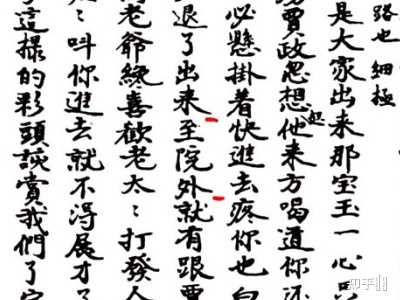 路也 細極
是大家出来那宝玉一心
賈政忽想起他来方喝道你还
必懸掛着快進去疼你也白
退了出来至院外就有跟賈
老爺纔喜歡老太：打發人
：叫你進去就不得展才了
這樣的彩頭該賞我們了
知乎